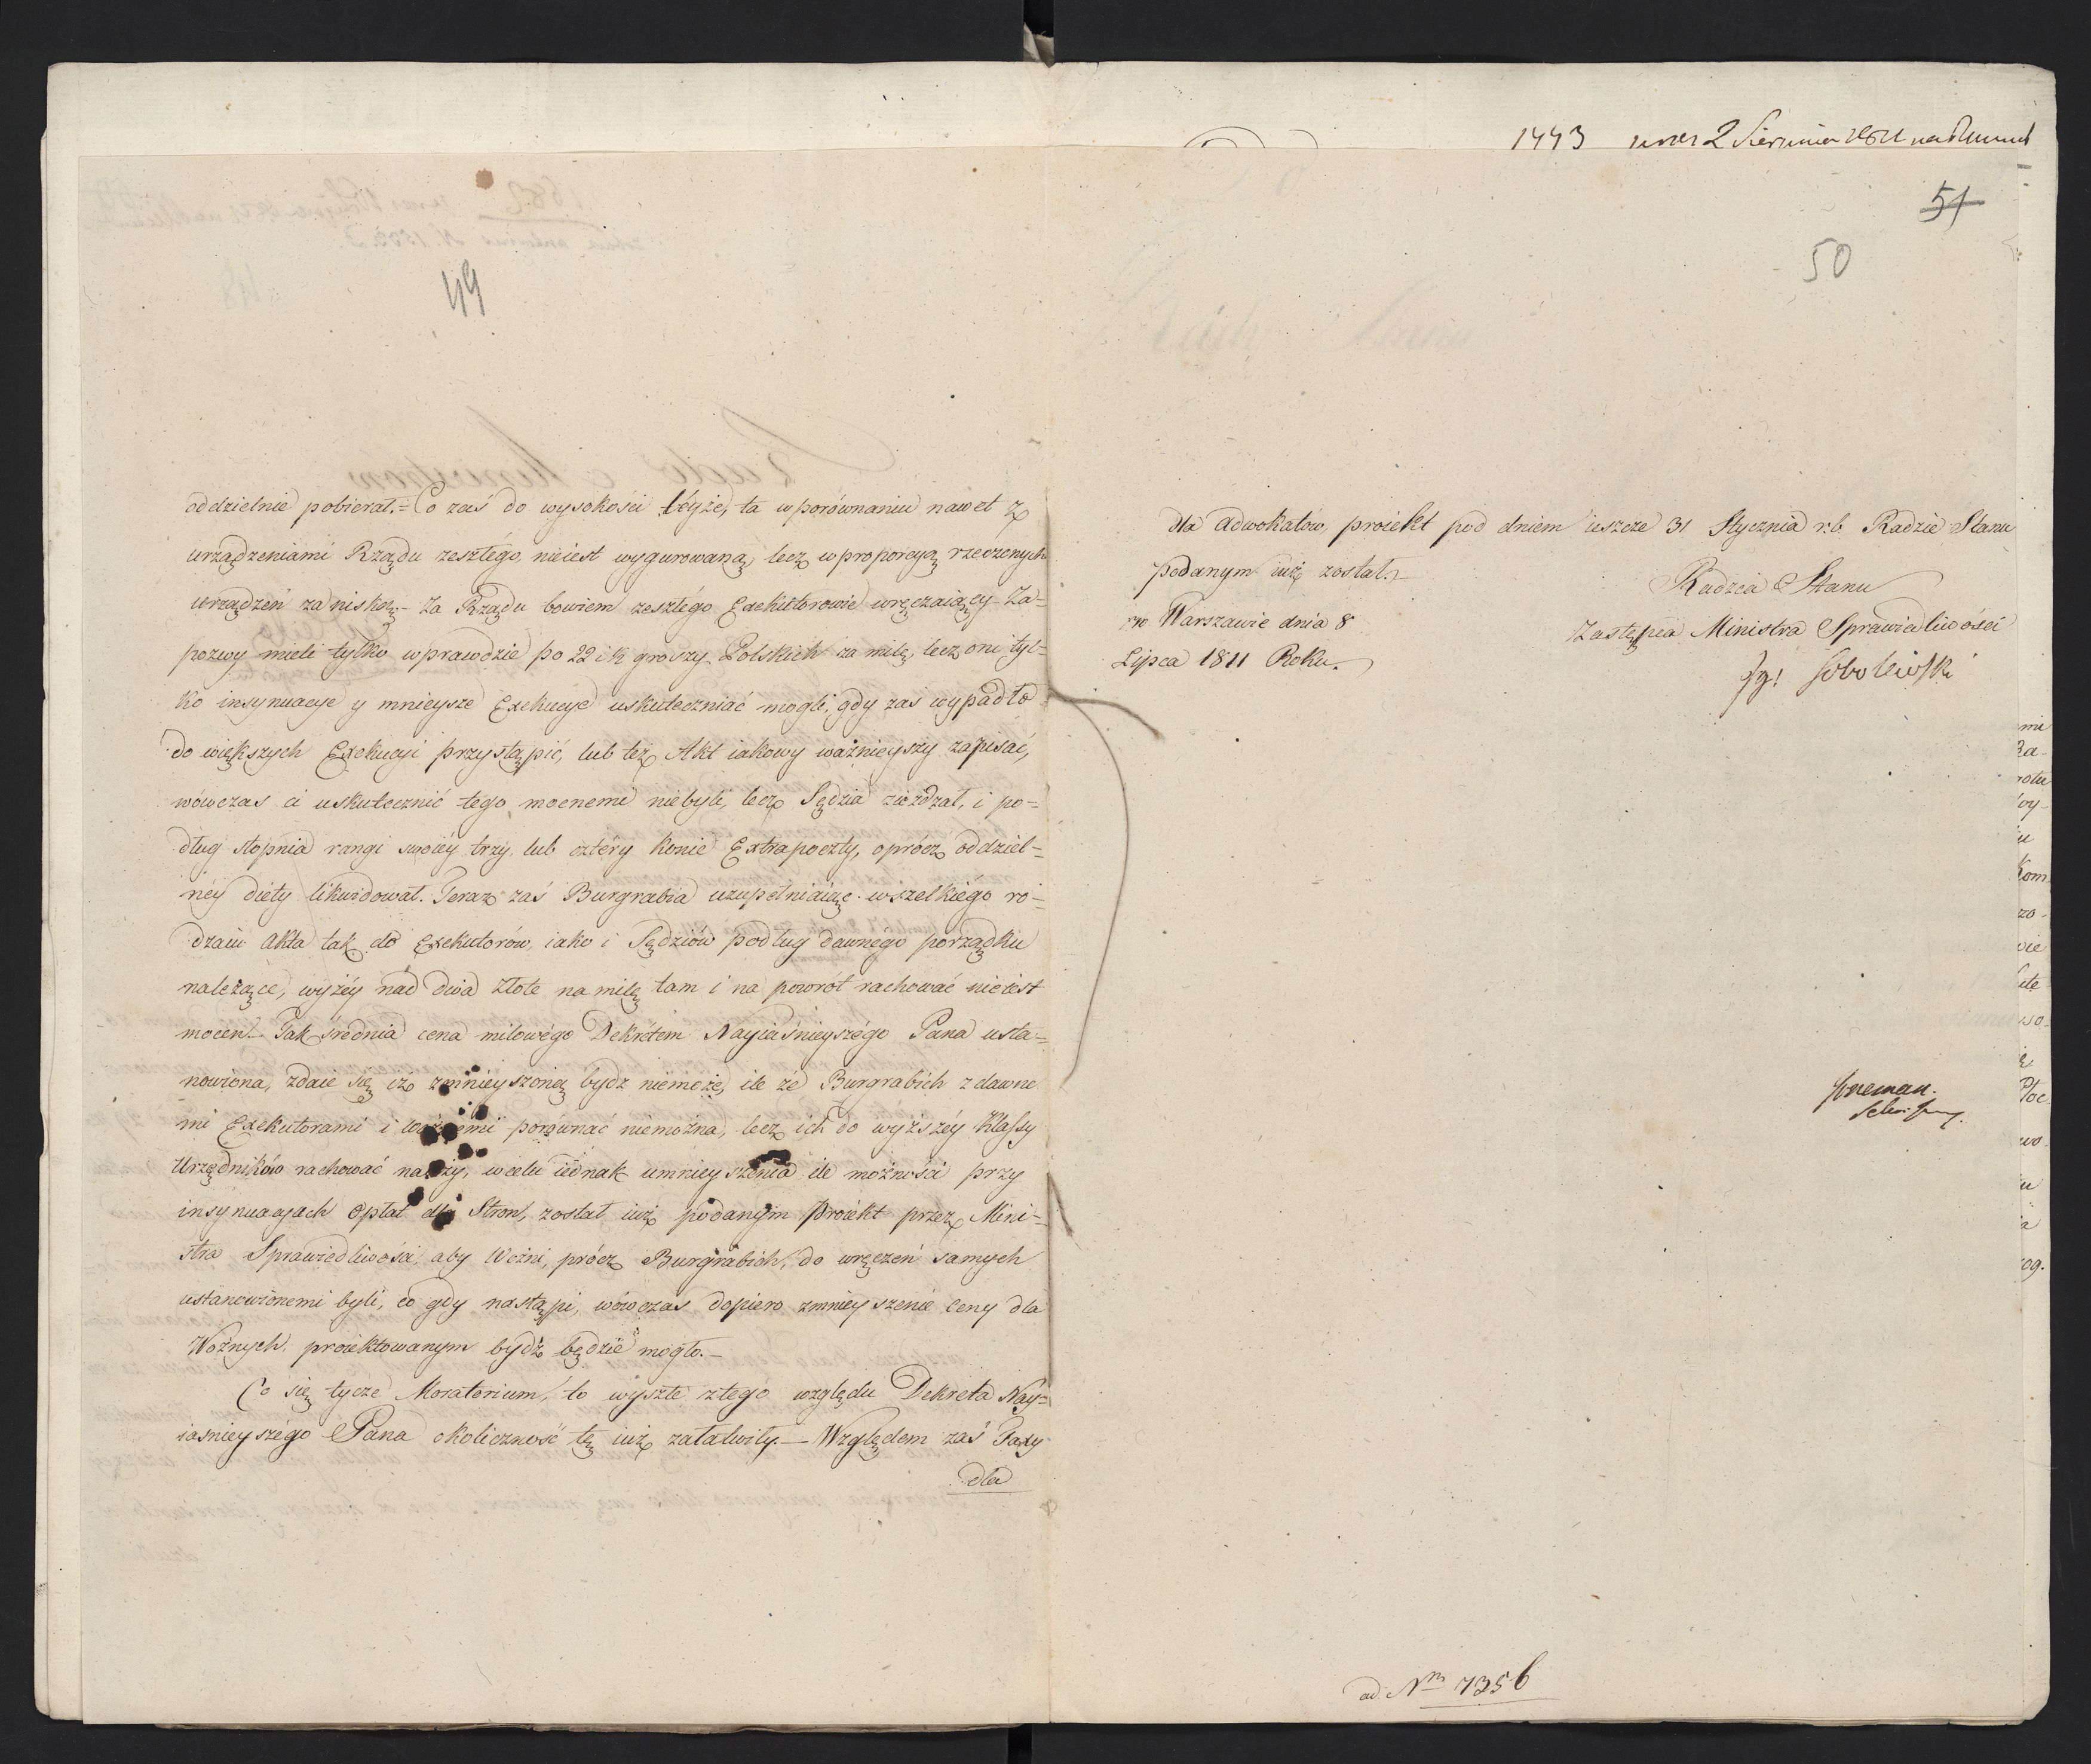 49
oddzielnie pobierał. = Co zaś do wysokości téyże, ta w porównaniu nawet z
urządzeniami Rządu zeszłego, nieiest wygurowaną, lecz w proporcyą rzeczonych
urządzeń za niską. – Za Rządu bowiem zeszłego Exekutorowie wręczaiący Za=
pozwy mieli tylko wprawdzie po 22 i ½ groszy Polskich za milę, lecz oni tyl=
ko insynuacye y mnieysze Exekucye uskuteczniać mogli, gdy zaś wypadło
do większych Exekucyi przystąpić, lub też Akt iakowy ważnieyszy zapisać,
wówczas ci uskutecznić tego mocnemi niebyli, lecz Sędzia zieżdżał, i po=
dług stopnia rangi swoiéy trzy lub cztéry konie Extrapoczty, oprócz oddziel=
néy diety likwidował. Teraz zaś Burgrabia uzupełniaiąc wszelkiégo ro=
dzaiu akta tak do Exekutorów, iako i Sędziów podług dawnégo porządku
należące, wyżéy nad dwa złote na milę tam i na powrót rachować nieiest
mocen. – Tak średnia cena milowégo Dekretem Nayiaśnieyszégo Pana usta=
nowiona, zdaie się iż zmnieyszoną bydz niemoże, ile że Burgrabich z dawne
mi Exekutorami i woźnemi porównać niemożna, lecz ich do wyższéy Klassy
Urzędników rachować należy, w celu iednak umnieyszenia ile możności przy
insynuacyach Opłat dla Stron, został iuż podanym Proiekt przez Mini=
stra Sprawiedliwości, aby Woźni, prócz Burgrabich, do wręczeń samych
ustanowionemi byli, co gdy nastąpi, wówczas dopiero zmnieyszenie ceny dla
Woźnych proiektowanym bydź będzie mogło. –
Co się tycze Moratorium, to wyszłe z tego względu Dekreta Nay=
iaśnieyszégo Pana okoliczność tę iuż załatwiły. – Względem zaś Taxy
dla
1443 2 Sierpnia
51
50
dla Adwokatów, proiekt pod dniem ieszcze 31 Stycznia r.b. Radzie Stanu
podanym iuż został. –
w Warszawie dnia 8
Lipca 1811 Roku.
Radzca Stanu
Zastępca Ministra Sprawiedliwości
Sobolewski
ad Nm 7356